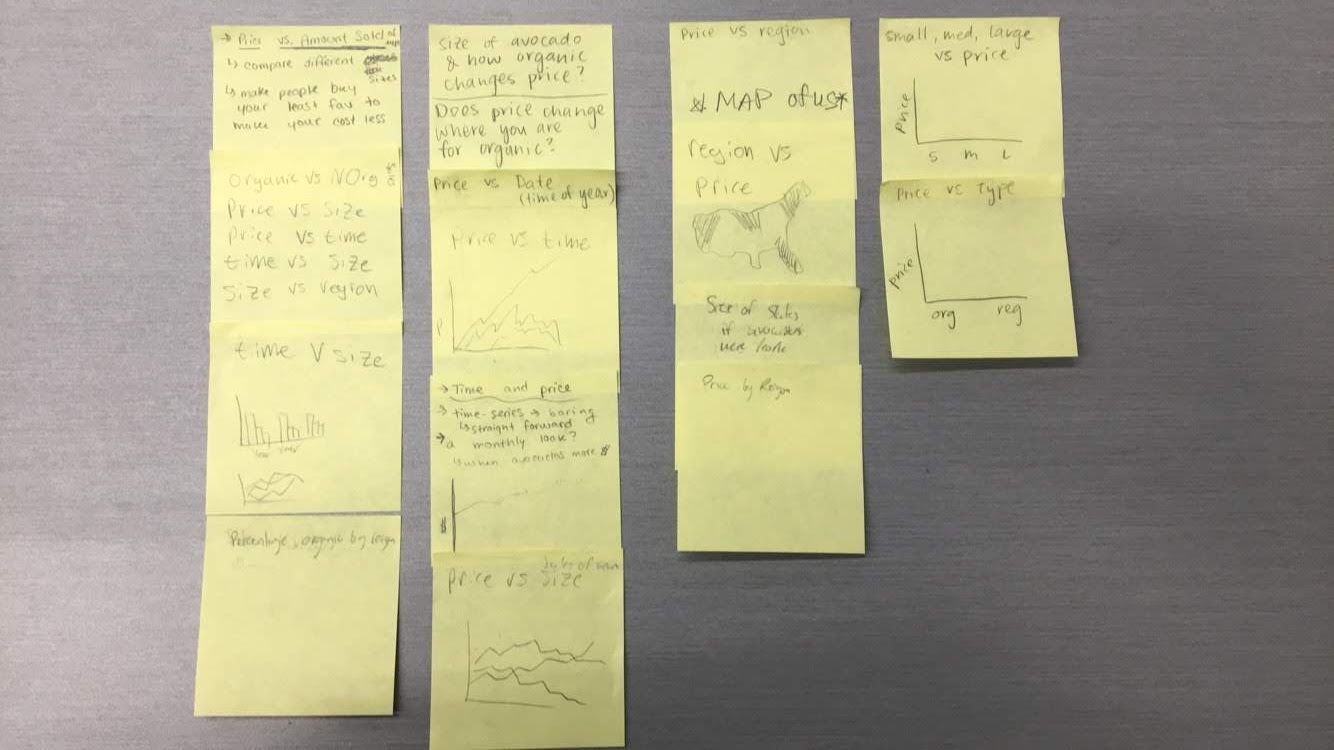 → Price vs. Amount Sold of
↳ compare different
sizes
↳ make people buy
your least fav to
make your cost less
Organic vs NOrg
Price VS Size
Price VS time
time vs Size
Size vs region
time V Size
year
Percentage organic by
Size of avocado
& how organic
changes price?
Does price change
where you are
for organic?
Price vs Date
(time of year)
Price vs time
P
→ Time and price
→ time-series → boring
↳ straight forward
→ a monthly look?
↳ when avocados more $
$
Price vs Size
Price vs region
* MAP of US*
region VS
Price
Size of States
if avocados
were
Price by
small, med, large
vs price
Price
S m L
Price vs Type
Price
org reg